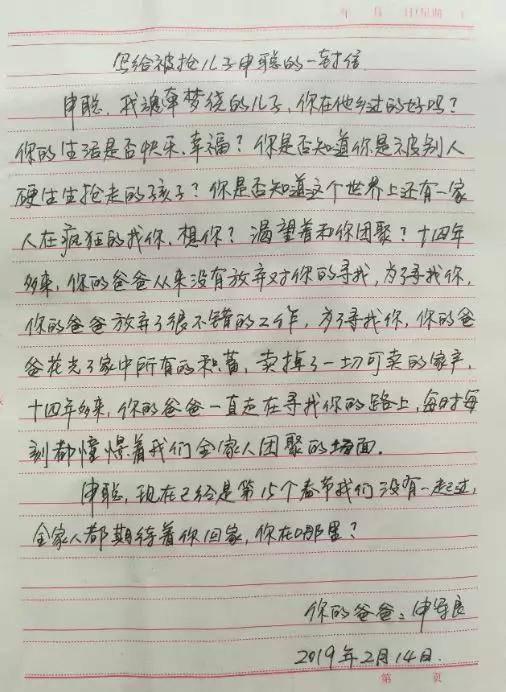 年 月 日(星期 )
写给被抢儿子申聪的一封信
申聪，我魂牵梦绕的儿子，你在他乡过的好吗？
你的生活是否快乐、幸福？你是否知道你是被别人
硬生生抢走的孩子？你是否知道这个世界上还有一家
人在疯狂的找你，想你？渴望着和你团聚？十四年
多来，你的爸爸从来没有放弃对你的寻找，为了寻找你，
你的爸爸放弃了很不错的工作，为了寻找你，你的爸
爸花光了家中所有的积蓄，卖掉了一切可卖的家产，
十四年多来，你的爸爸一直走在寻找你的路上，每时每
刻都憧憬着我们全家人团聚的场面。
申聪，现在已经是第15个春节我们没有一起过，
全家人都期待着你回家，你在哪里？
你的爸爸：申军良
2019年2月14日.
第 页